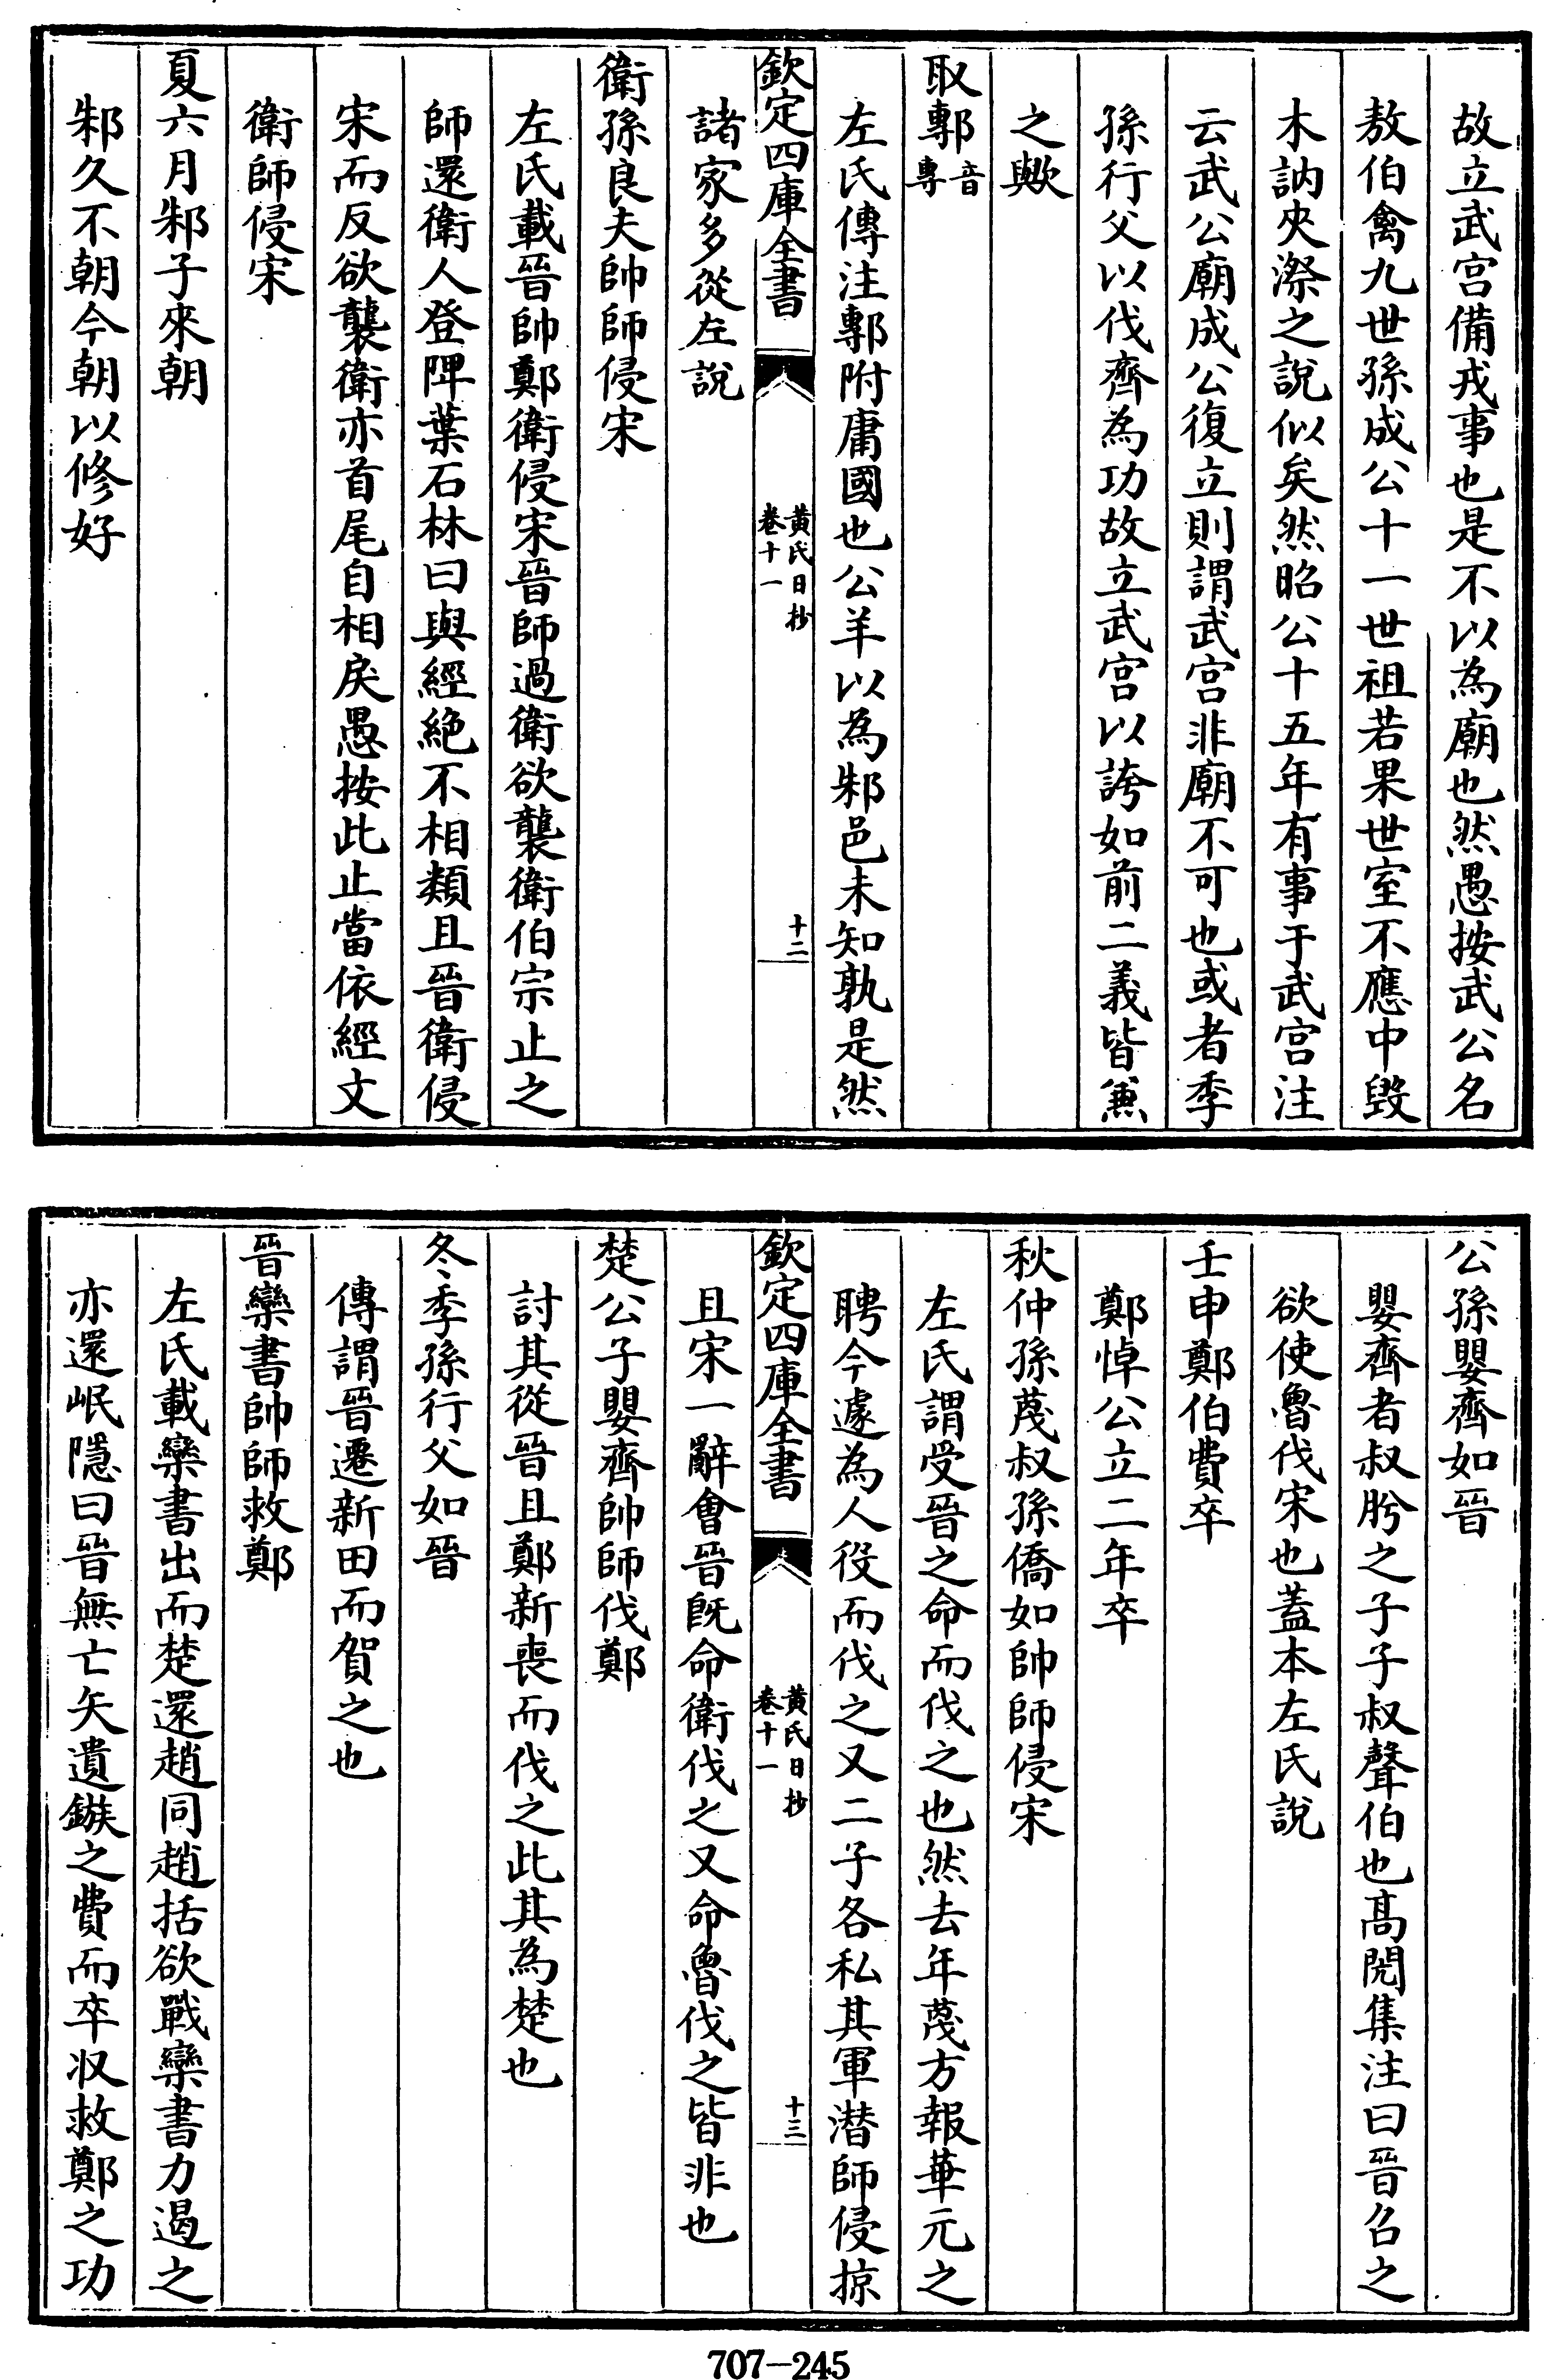 故立武宫備戎事也是不以為廟也然愚按武公名
敖伯禽九世孫成公十一世祖若果世室不應中毁
木訥夾漈之說似矣然昭公十五年有事于武宫注
云武公廟成公復立則謂武宫非廟不可也或者季
孫行父以伐齊為功故立武宫以誇如前二義皆兼
之歟
取鄟音專
左氏傳注鄟附庸國也公羊以為邾邑未知孰是然
欽定四庫全書
黄氏日抄
卷十一
十二
諸家多從左說
衛孫良夫帥師侵宋
左氏載晉帥鄭衛侵宋晉師過衛欲襲衛伯宗止之
師還衛人登陴葉石林曰與經絶不相類且晉衛侵
宋而反欲襲衛亦首尾自相戾愚按此止當依經文
衛師侵宋
夏六月邾子來朝
邾久不朝今朝以修好
公孫嬰齊如晉
嬰齊者叔肹之子子叔聲伯也髙閌集注曰晉召之
欲使魯伐宋也蓋本左氏說
壬申鄭伯費卒
鄭悼公立二年卒
秋仲孫蔑叔孫僑如帥師侵宋
左氏謂受晉之命而伐之也然去年蔑方報華元之
聘今遽為人役而伐之又二子各私其軍潜師侵掠
欽定四庫全書
黄氏日抄
卷十一
十三
且宋一辭會晉既命衛伐之又命魯伐之皆非也
楚公子嬰齊帥師伐鄭
討其從晉且鄭新喪而伐之此其為楚也
冬季孫行父如晉
傳謂晉遷新田而賀之也
晉欒書帥師救鄭
左氏載欒書出而楚還趙同趙括欲戰欒書力遏之
亦還岷隱曰晉無亡矢遺鏃之費而卒収救鄭之功
707-245